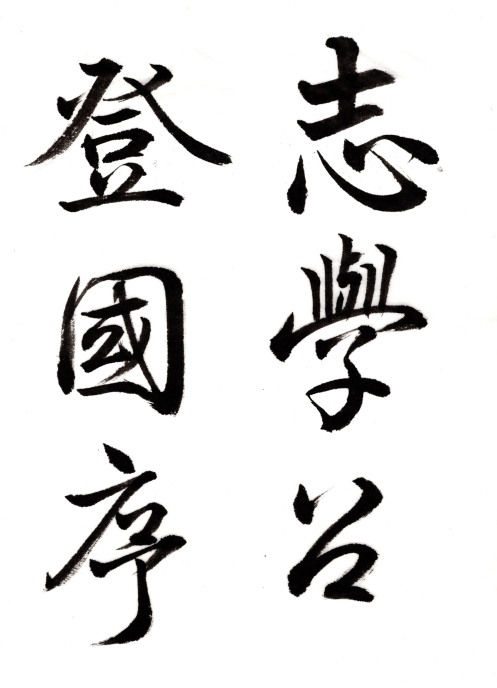 志學
登國序